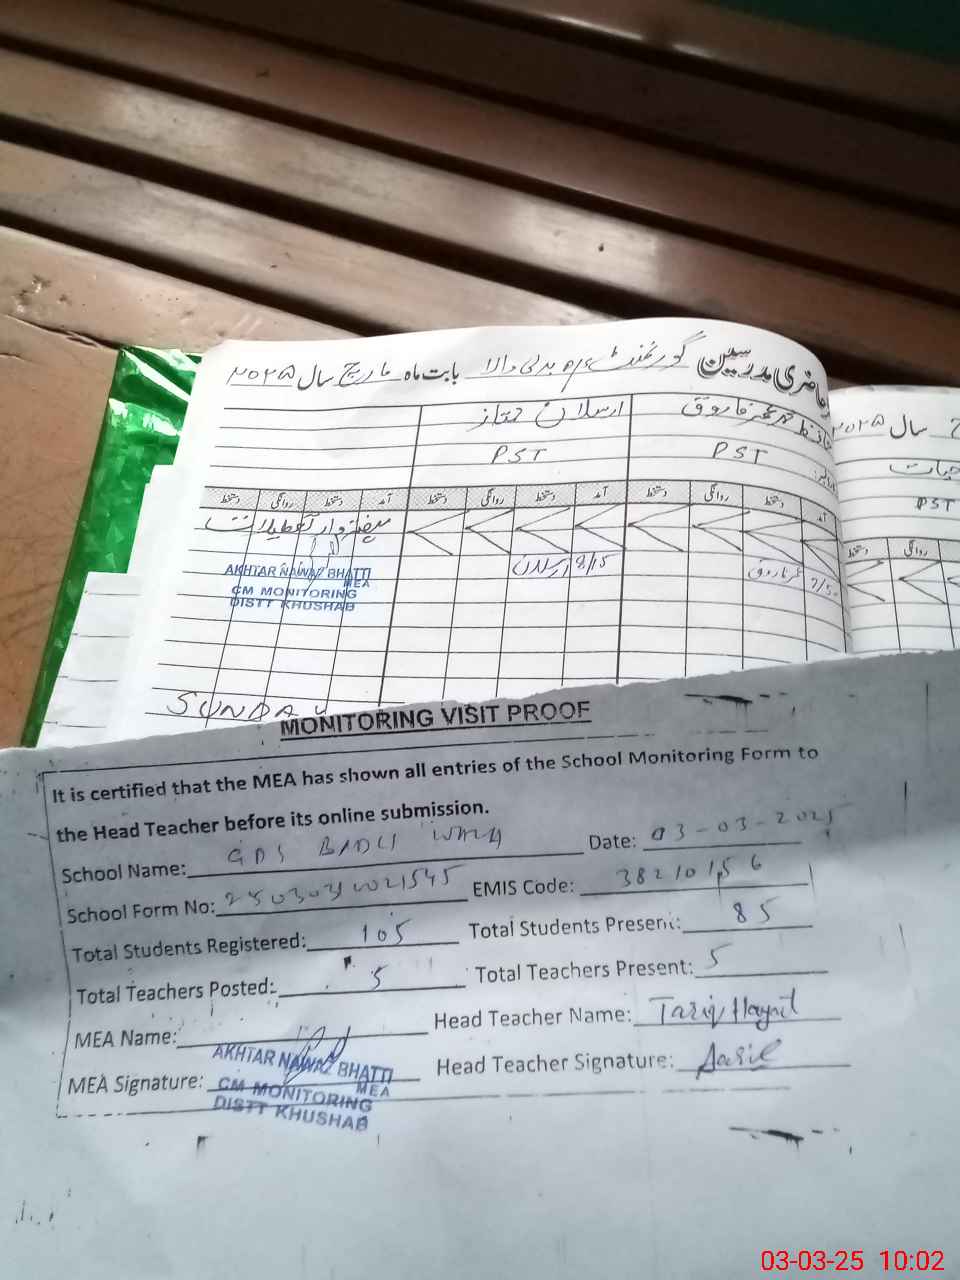 حاضری مدرسین گورنمنٹ بدلی والا بابت ماہ مارچ سال ۲۰۲۵
سال ۲۰۲۵
محمد عمر فاروق ارسلان ممتاز
حیات
PST PST
PST
آمد دستخط روانگی دستخط آمد دستخط روانگی دستخط آمد دستخط روانگی دستخط
روانگی دستخط
ہفتہ وار تعطیلات
AKHTAR NAWAZ BHATTI
MEA
CM MONITORING
DISTT KHUSHAB
8/15 ارسلان
عمر فاروق
SUNDAY
MONITORING VISIT PROOF
It is certified that the MEA has shown all entries of the School Monitoring Form to
the Head Teacher before its online submission.
School Name: GPS BADLI WALA Date: 03-03-2025
School Form No: EMIS Code: 38210156
Total Students Registered: 105 Total Students Present: 85
Total Teachers Posted: 5 Total Teachers Present: 5
MEA Name: Head Teacher Name: Tariq Hayat
MEA Signature: Head Teacher Signature:
AKHTAR NAWAZ BHATTI
MEA
CM MONITORING
DISTT KHUSHAB
03-03-25 10:02